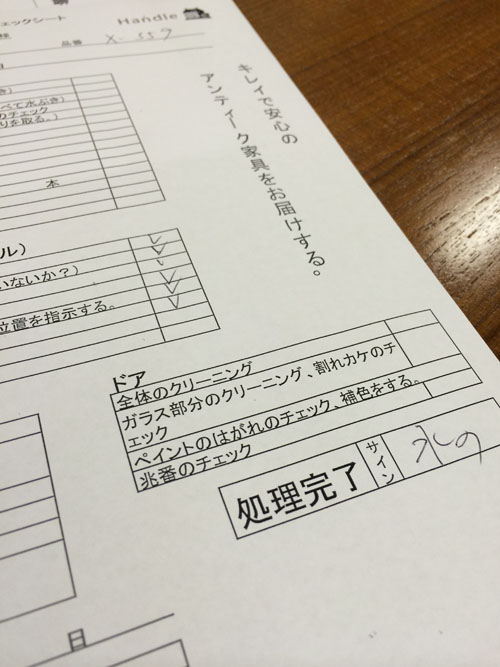 ェックシート
Handle
様
品番
X-557
キレイで安心の
アンティーク家具をお届けする。
べて水ぶき)
のチェック
りを取る。)
本
ル)
いないか?)
位置を指示する。
ドア
全体のクリーニング
ガラス部分のクリーニング、割れカケのチ
ェック
ペイントのはがれのチェック、補色をする。
兆番のチェック
処理完了
サイン